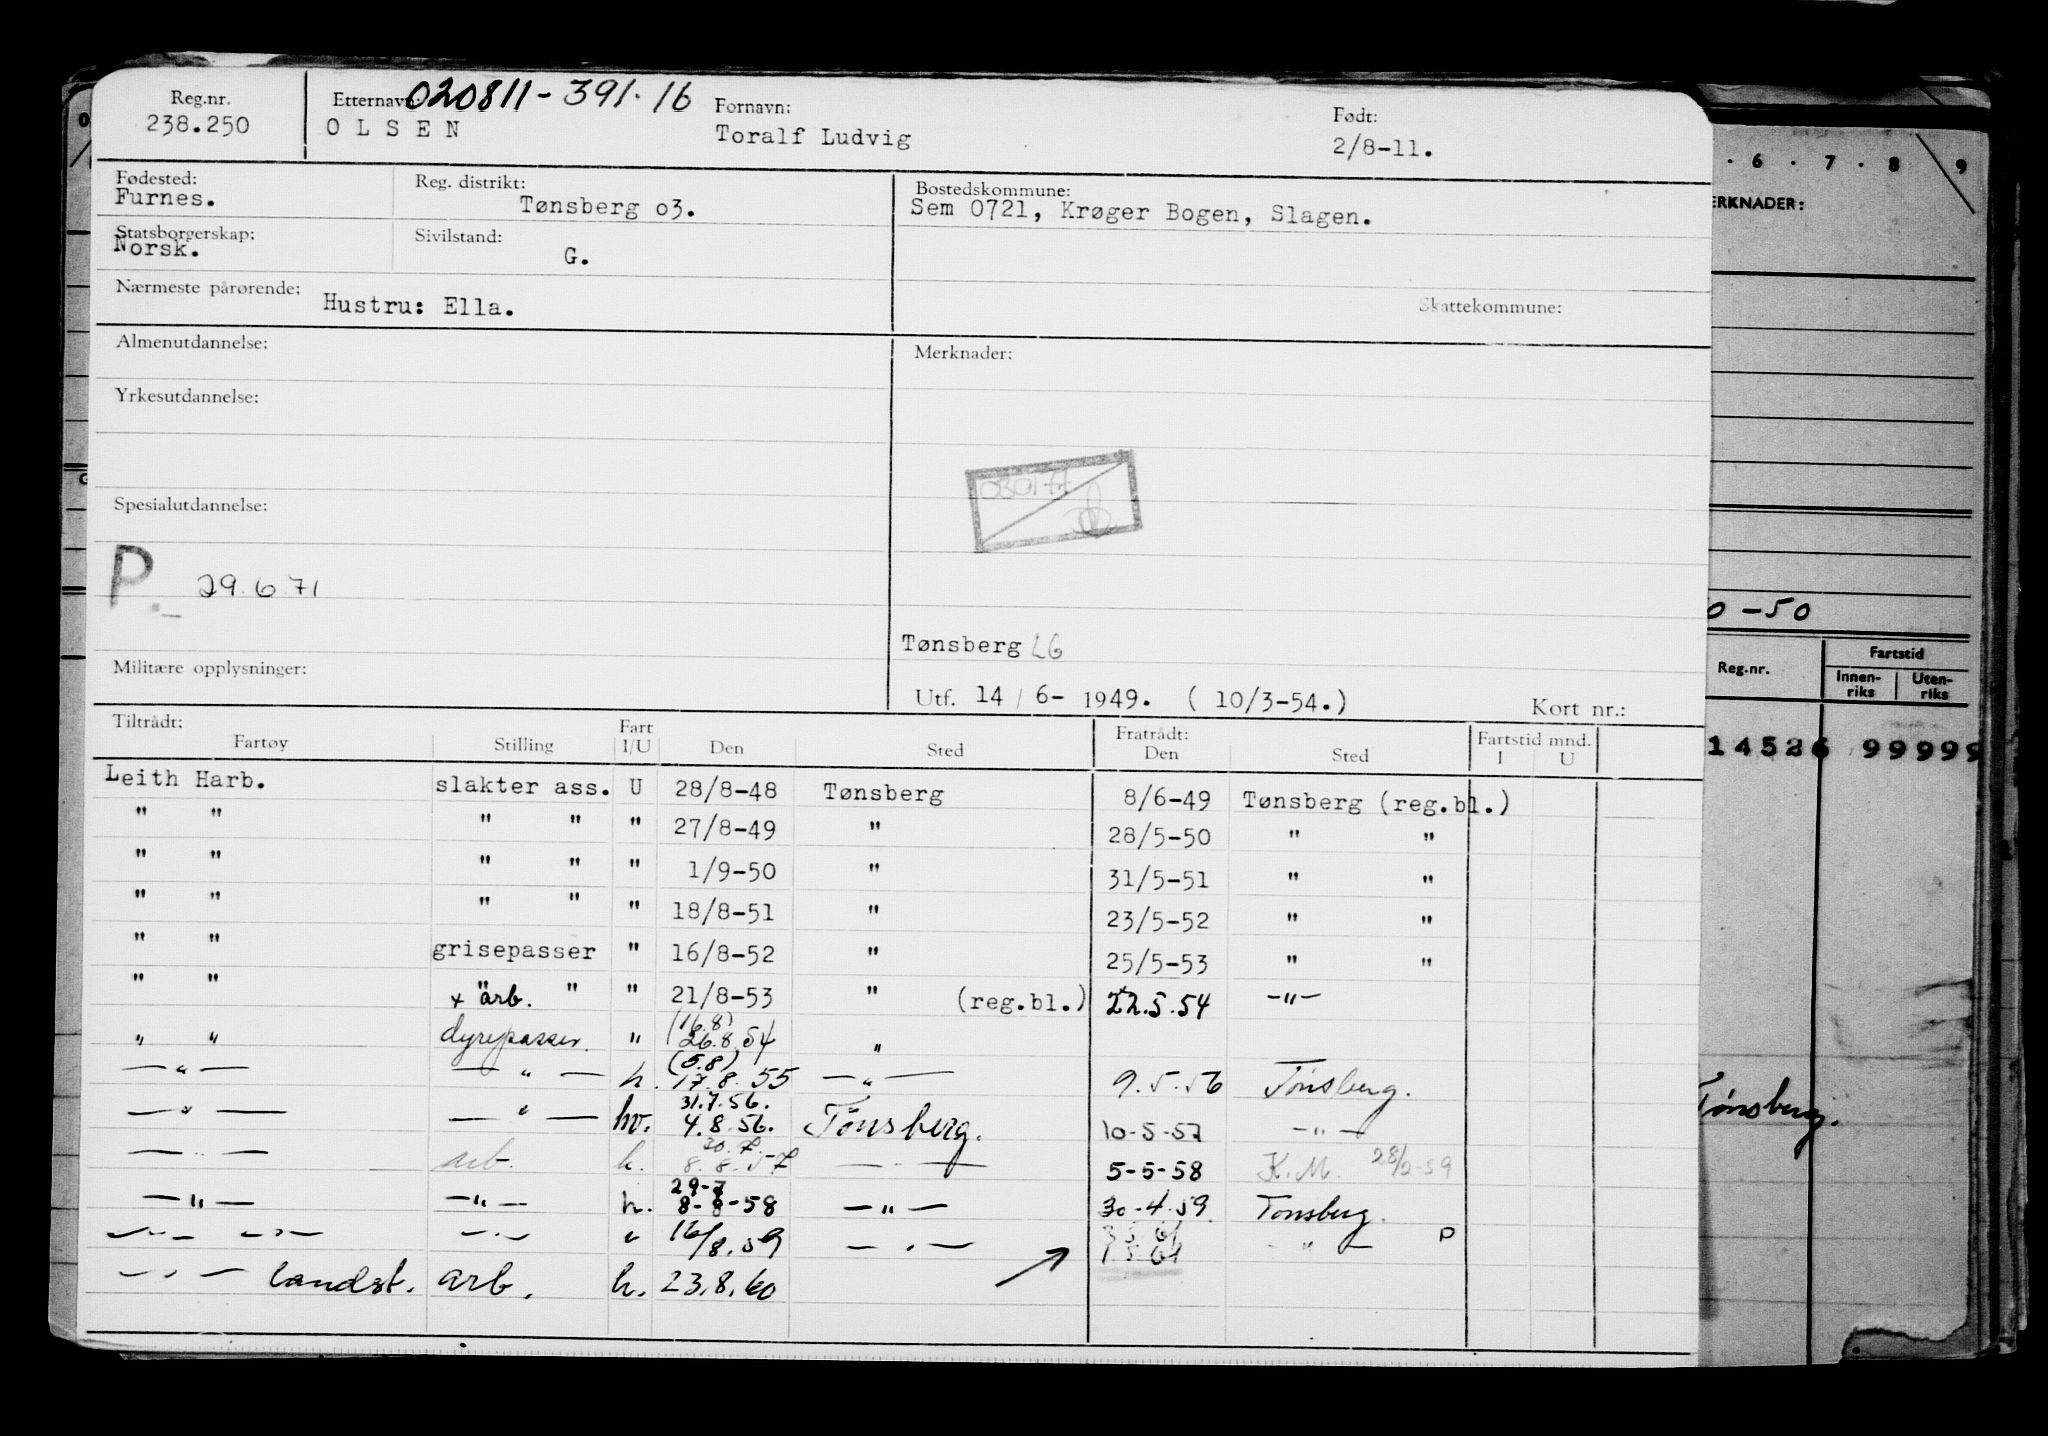 Reg.nr. Etternavn: 020811-391.16 Fornavn: Født:
238.250 OLSEN Toralf Ludvig 2/8-11.
Fødested: Reg. distrikt: Bostedskommune:
Furnes. Tønsberg o3. Sem 0721, Krøger Bogen, Slagen.
Statsborgerskap: Sivilstand:
Norsk. G.
Nærmeste pårørende: Hustru: Ella. Skattekommune:
Almenutdannelse: Merknader:
Yrkesutdannelse:
030177
Spesialutdannelse:
P 29.6.71
Tønsberg LG
Militære opplysninger:
Utf. 14 / 6- 1949. ( 10/3-54.) Kort nr.:
Tiltrådt: Fart Fratrådt: Fartstid mnd.
Fartøy Stilling I/U Den Sted Den Sted I U
Leith Harb. slakter ass. U 28/8-48 Tønsberg 8/6-49 Tønsberg (reg.bl.)
" " " " " 27/8-49 " 28/5-50 " "
" " " " " 1/9-50 " 31/5-51 " "
" " " " " 18/8-51 " 23/5-52 " "
" " grisepasser " 16/8-52 " 25/5-53 " "
" " + "arb. " " 21/8-53 " (reg.bl.) 22.5.54 -"-
" " dyrepasser. " (16.8) 26.8.54 "
-"- -"- h. (5.8) 17.8.55 -"- 9.5.56 Tønsberg.
-"- -"- hv. 31.7.56. 4.8.56. Tönsberg. 10-5-57 -"-
-"- arb. h. 30.7. 8.8.57 -"- 5-5-58 K.M. 28/2-59
-"- -"- h. 29-7 8-8-58 -"- 30-4.59. Tønsberg.
-"- -"- -"- " 16/8.59 -"- 1.5.61 -"- P
-"- landst. arb. h. 23.8.60
6 . 7 . 8 9
ERKNADER:
0-50
Reg.nr. Fartstid
Innen-riks Uten-riks
14526 99999
Tönsberg.